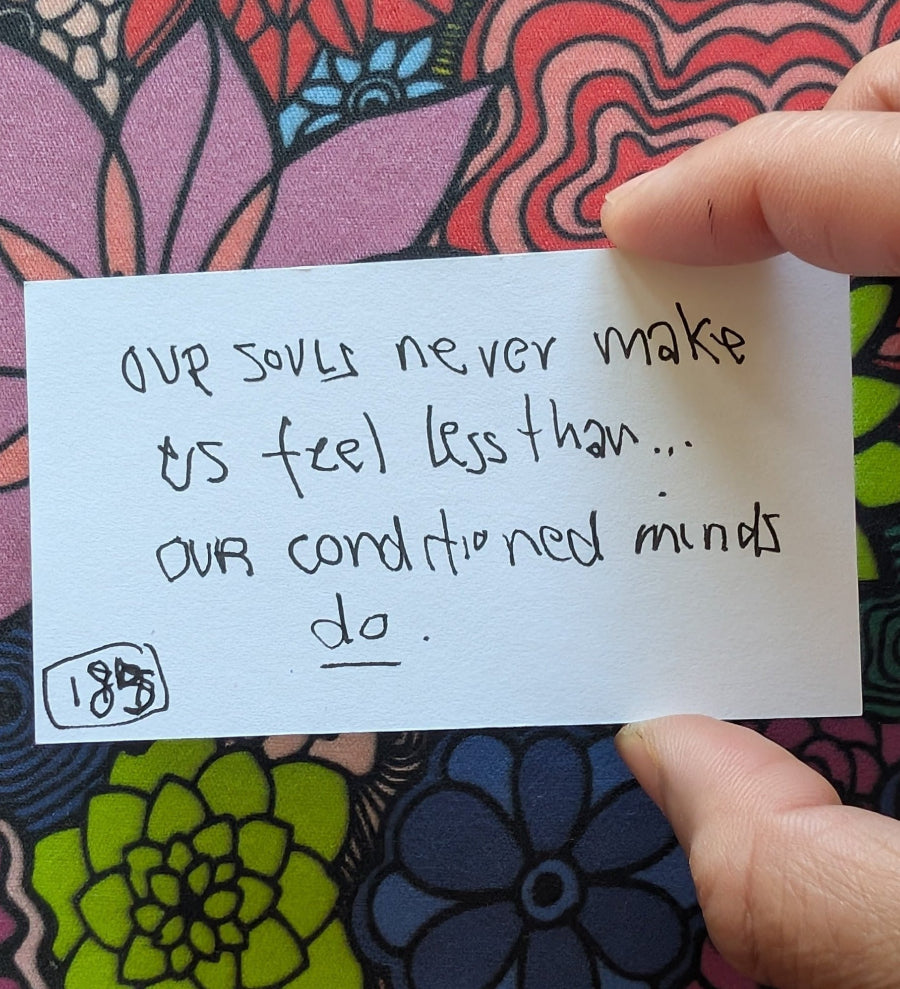 OUR SOULS never make
us feel less than...
OUR conditioned minds
do.
185